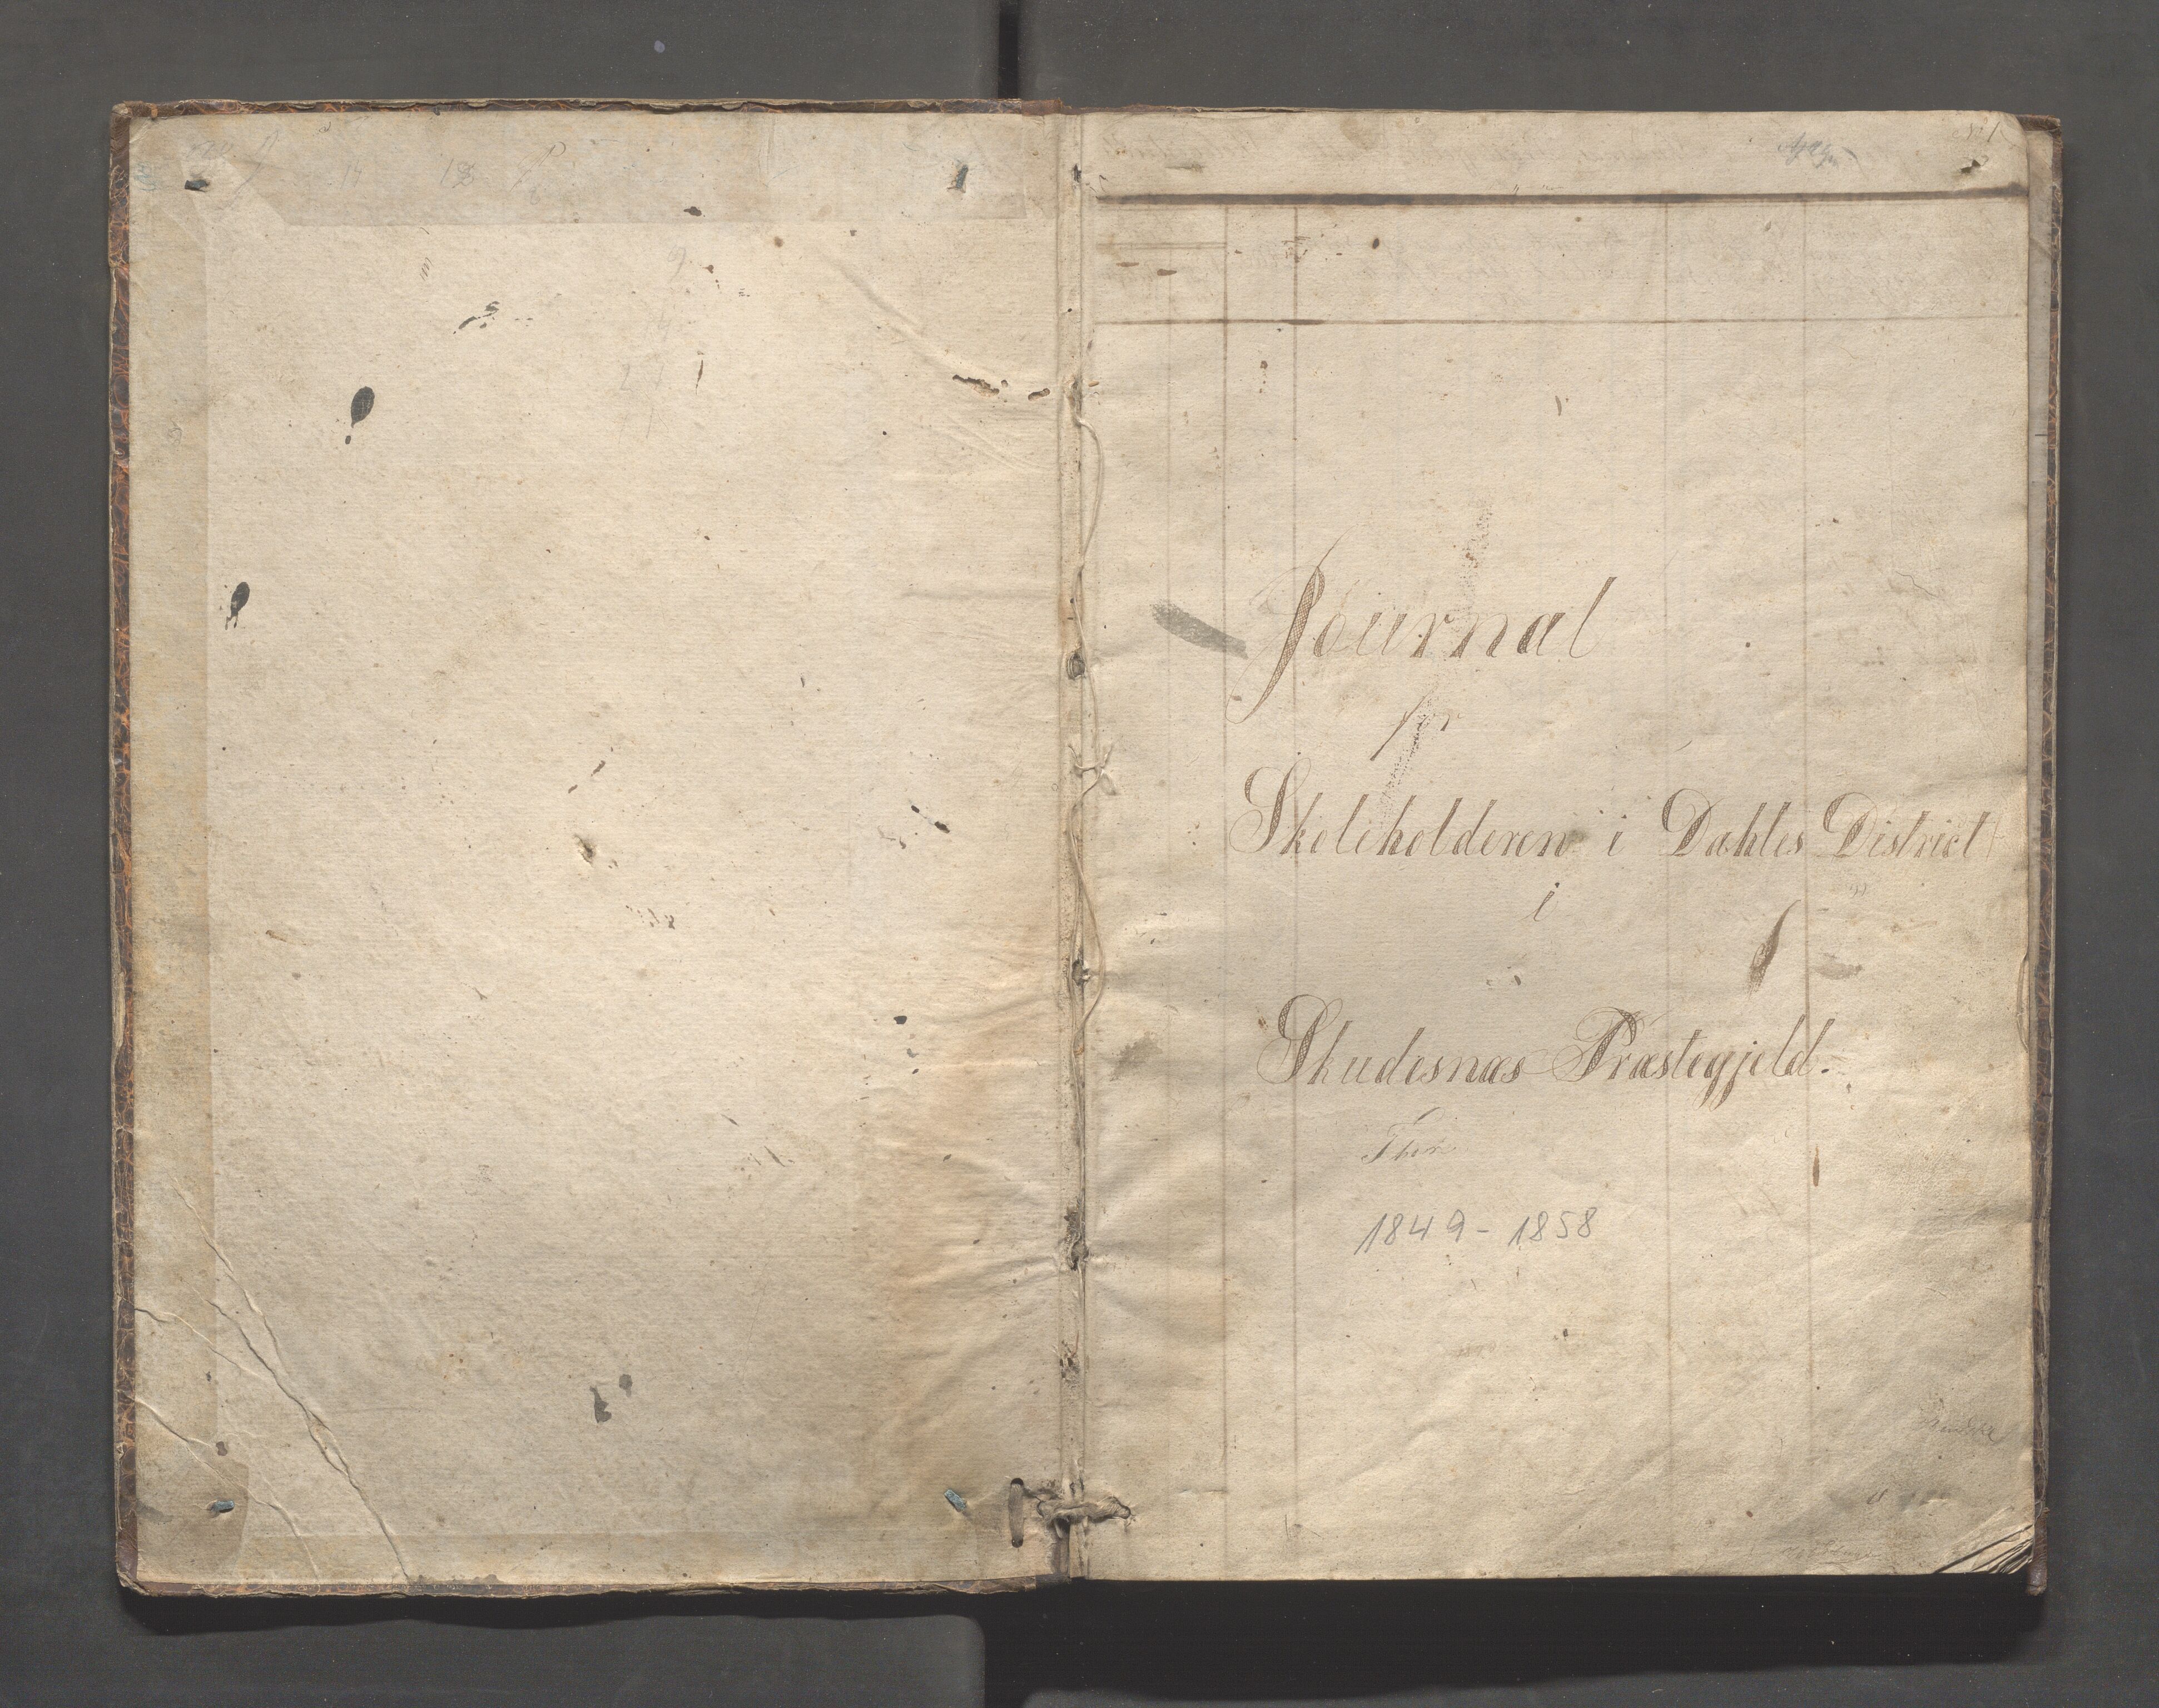 Journal
for
Skoleholderen i Dahles District
i
Skudesnæs Præstegjeld.
1849-1858